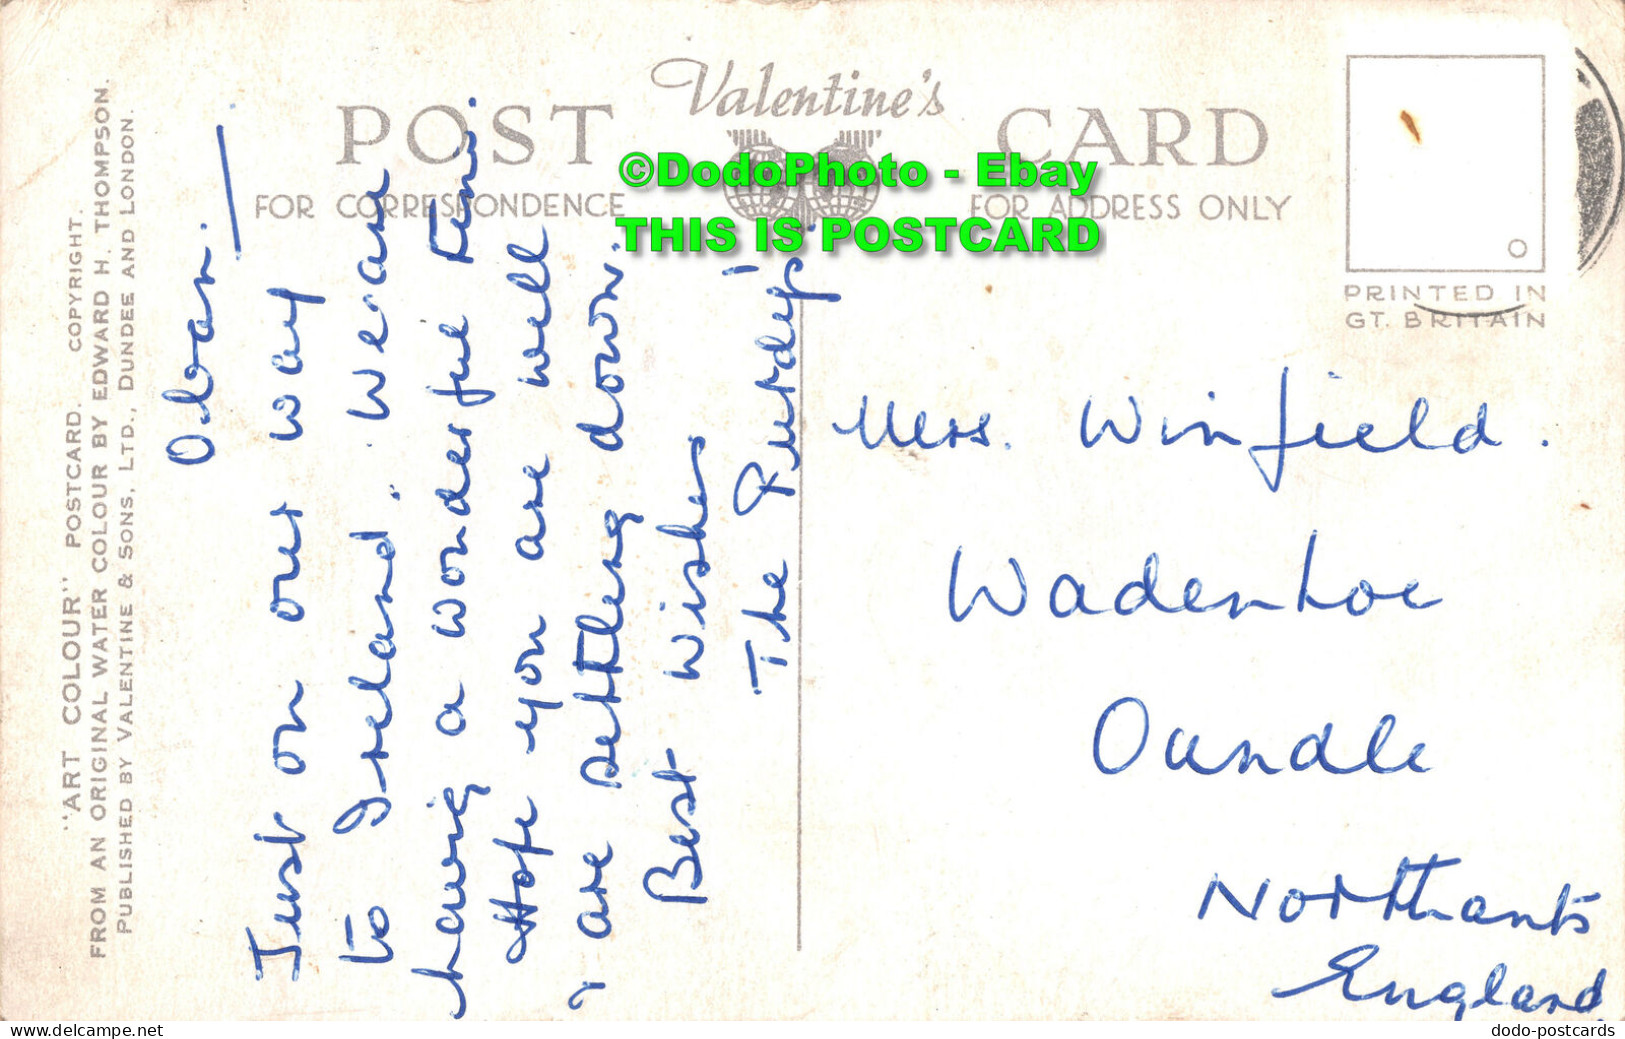 "ART COLOUR" POSTCARD. COPYRIGHT.
FROM AN ORIGINAL WATER COLOUR BY EDWARD H. THOMPSON.
PUBLISHED BY VALENTINE & SONS, LTD., DUNDEE AND LONDON.
Valentine's
POST CARD
FOR CORRESPONDENCE
FOR ADDRESS ONLY
PRINTED IN
GT. BRITAIN
©DodoPhoto - Ebay
THIS IS POSTCARD
Oban.
Just on our way
to Ireland. We are
having a wonderful time.
Hope you are well
& are settling down.
Best wishes
The
Mrs. Winfield.
Wadenhoe
Oundle
Northants
England
www.delcampe.net
dodo-postcards